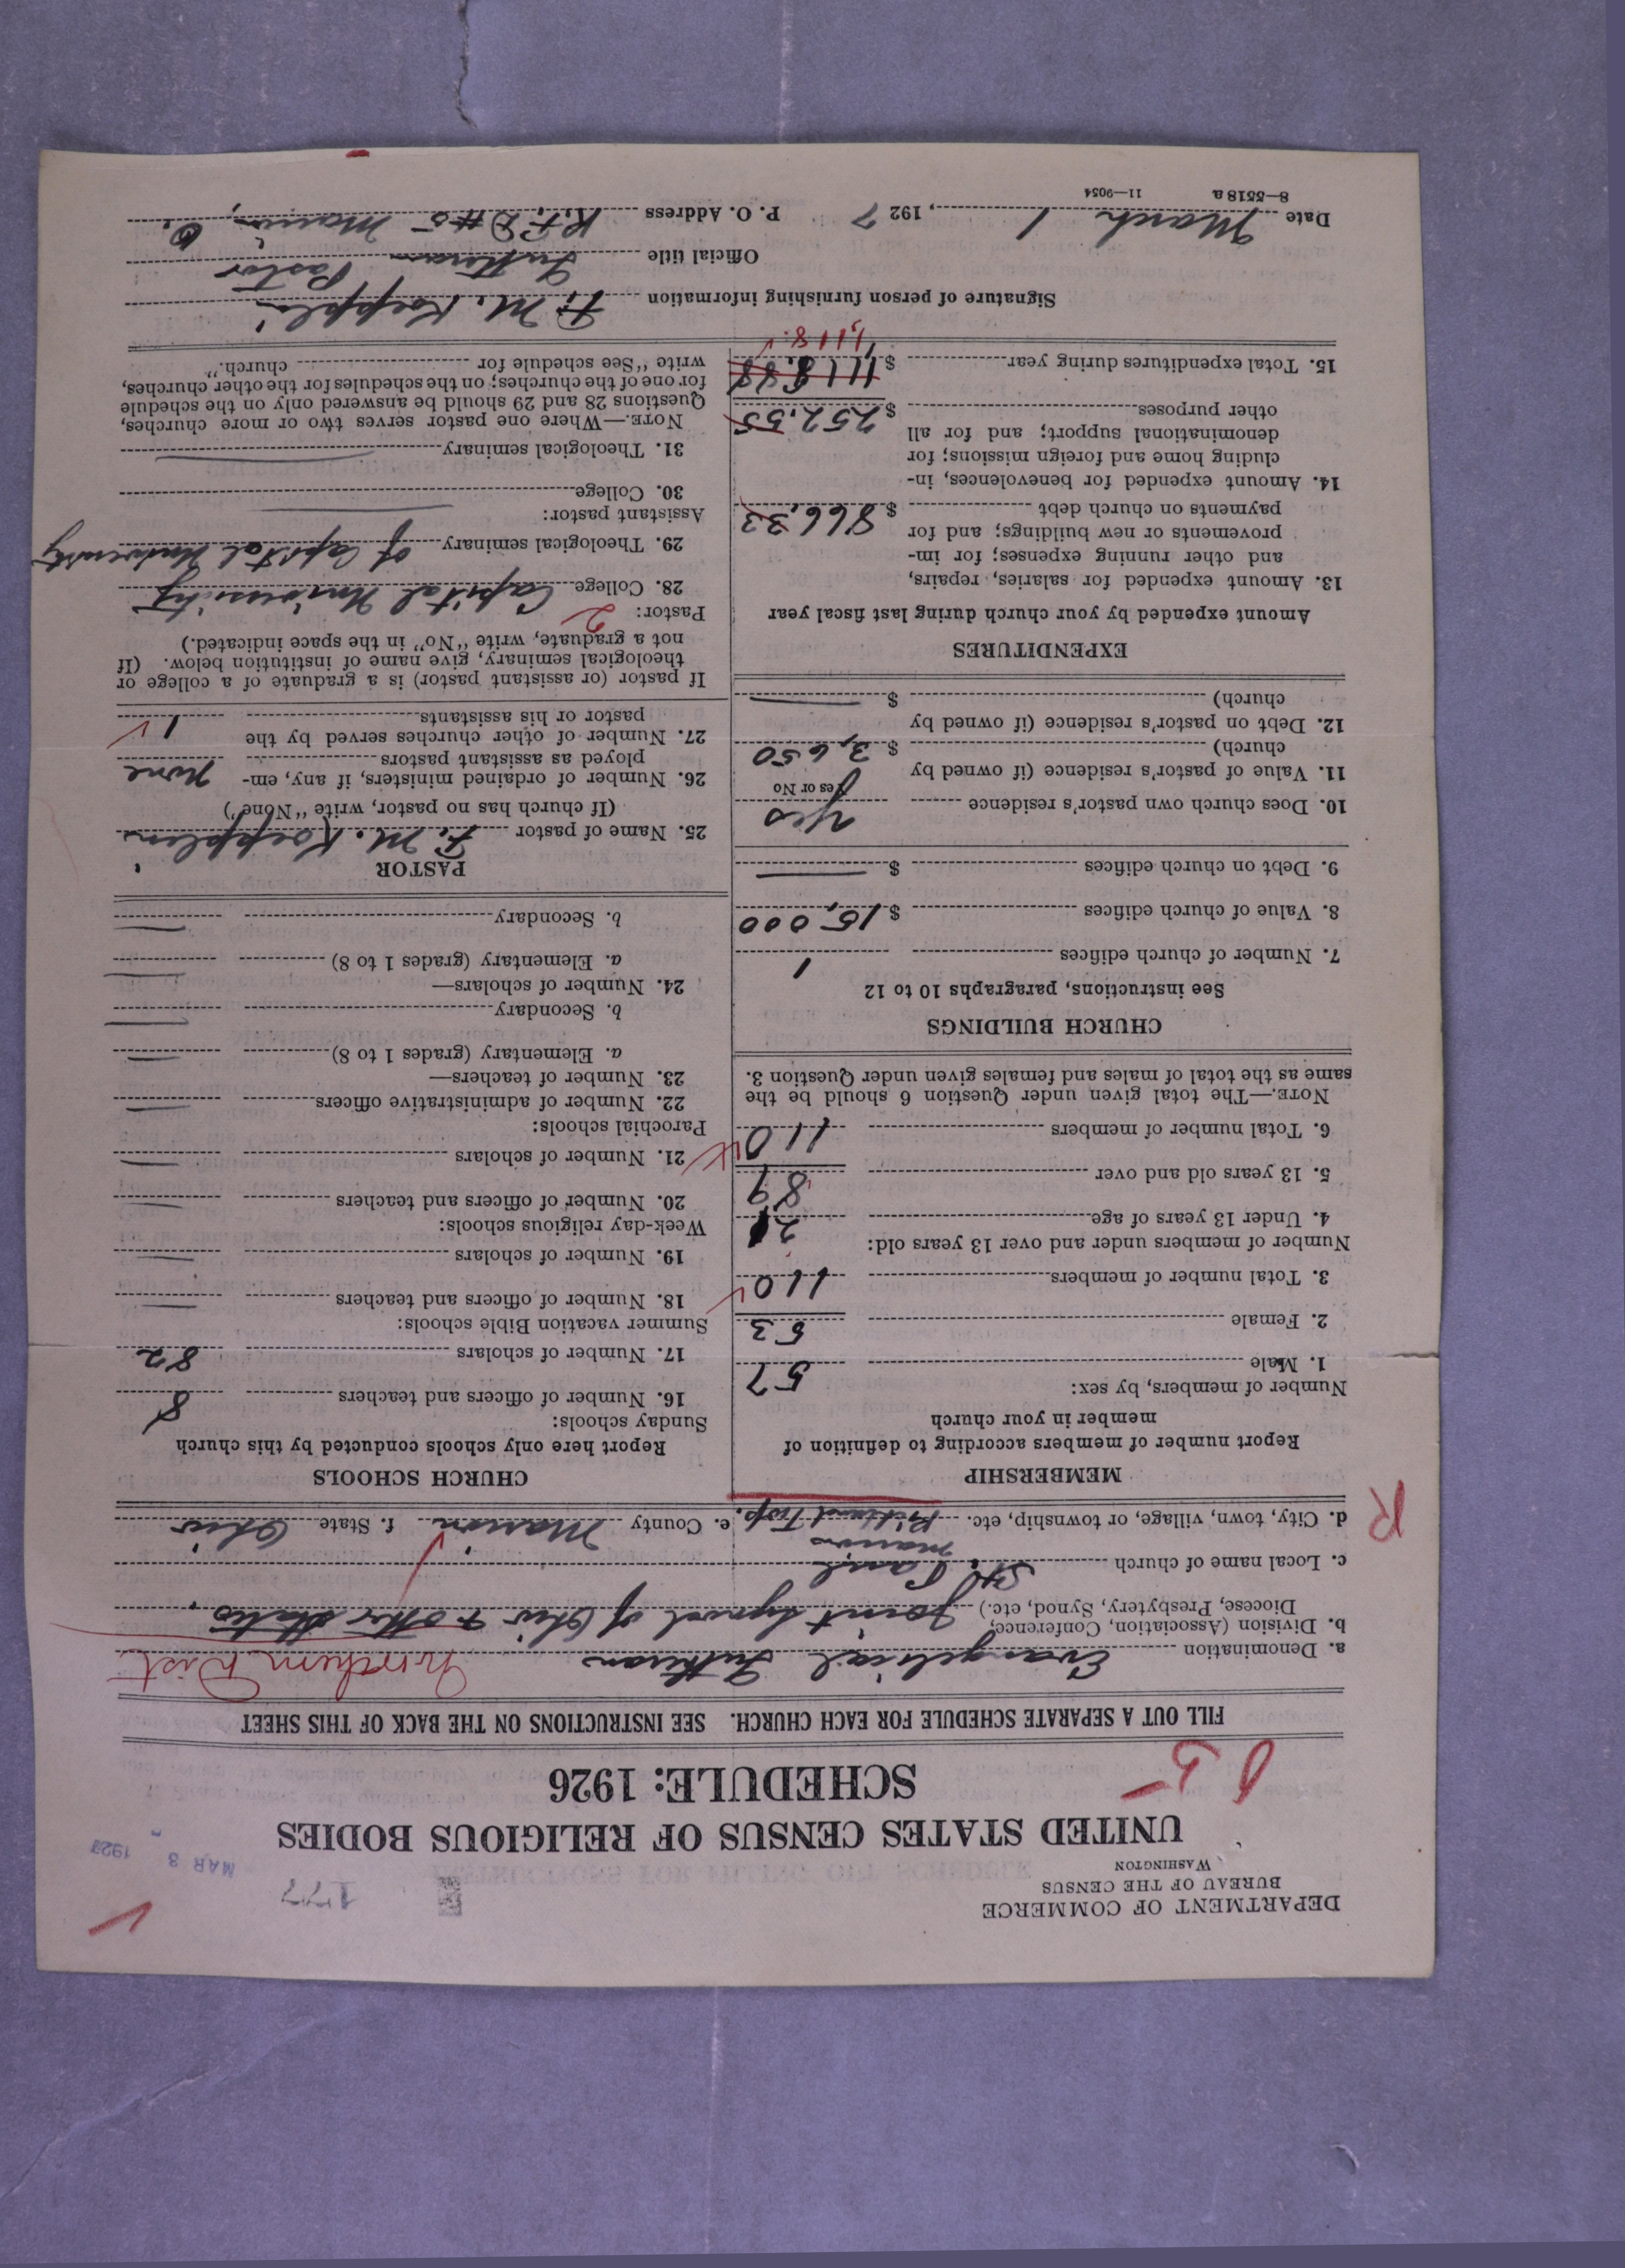 DEPARTMENT OF COMMERCE
BUREAU OF THE CENSUS
WASHINGTON
177
MAR 3 1927
UNITED STATES CENSUS OF RELIGIOUS BODIES
SCHEDULE: 1926
FILL OUT A SEPARATE SCHEDULE FOR EACH CHURCH. SEE INSTRUCTIONS ON THE BACK OF THIS SHEET
a. Denomination Evangelical Lutheran Northern Dist.
b. Division (Association, Conference, Diocese, Presbytery, Synod, etc.) Joint Synod of Ohio & other States.
c. Local name of church St. Paul
Marion
d. City, town, village, or township, etc. Richland Twp. e. County Marion f. State Ohio
R
MEMBERSHIP
Report number of members according to definition of
member in your church
Number of members, by sex:
1. Male 57
2. Female 53
3. Total number of members 110
Number of members under and over 13 years old:
4. Under 13 years of age 21
5. 13 years old and over 89
6. Total number of members 110
NOTE.—The total given under Question 6 should be the
same as the total of males and females given under Question 3.
CHURCH BUILDINGS
See instructions, paragraphs 10 to 12
7. Number of church edifices 1
8. Value of church edifices $ 15,000
9. Debt on church edifices $
10. Does church own pastor's residence Yes
Yes or No
11. Value of pastor's residence (if owned by
church) $ 3,650
12. Debt on pastor's residence (if owned by
church) $
EXPENDITURES
Amount expended by your church during last fiscal year
13. Amount expended for salaries, repairs,
and other running expenses; for im-
provements or new buildings; and for
payments on church debt $ 866.33
14. Amount expended for benevolences, in-
cluding home and foreign missions; for
denominational support; and for all
other purposes $ 252.55
15. Total expenditures during year $ 1118.88
1,118
CHURCH SCHOOLS
Report here only schools conducted by this church
Sunday schools:
16. Number of officers and teachers 8
17. Number of scholars 82
Summer vacation Bible schools:
18. Number of officers and teachers
19. Number of scholars
Week-day religious schools:
20. Number of officers and teachers
21. Number of scholars
Parochial schools:
22. Number of administrative officers
23. Number of teachers—
a. Elementary (grades 1 to 8)
b. Secondary
24. Number of scholars—
a. Elementary (grades 1 to 8)
b. Secondary
PASTOR
25. Name of pastor F. M. Koepplin
(If church has no pastor, write "None")
26. Number of ordained ministers, if any, em-
ployed as assistant pastors None
27. Number of other churches served by the
pastor or his assistants 1
If pastor (or assistant pastor) is a graduate of a college or
theological seminary, give name of institution below. (If
not a graduate, write "No" in the space indicated.)
Pastor: 2
28. College Capital University
29. Theological seminary of Capital University
Assistant pastor:
30. College
31. Theological seminary
NOTE.—Where one pastor serves two or more churches,
Questions 28 and 29 should be answered only on the schedule
for one of the churches; on the schedules for the other churches,
write "See schedule for church."
Signature of person furnishing information F. M. Koepplin
Official title Lutheran Pastor
Date March 1, 1927 P. O. Address R.F.D #5 Marion, O.
8—5518 a 11—9054